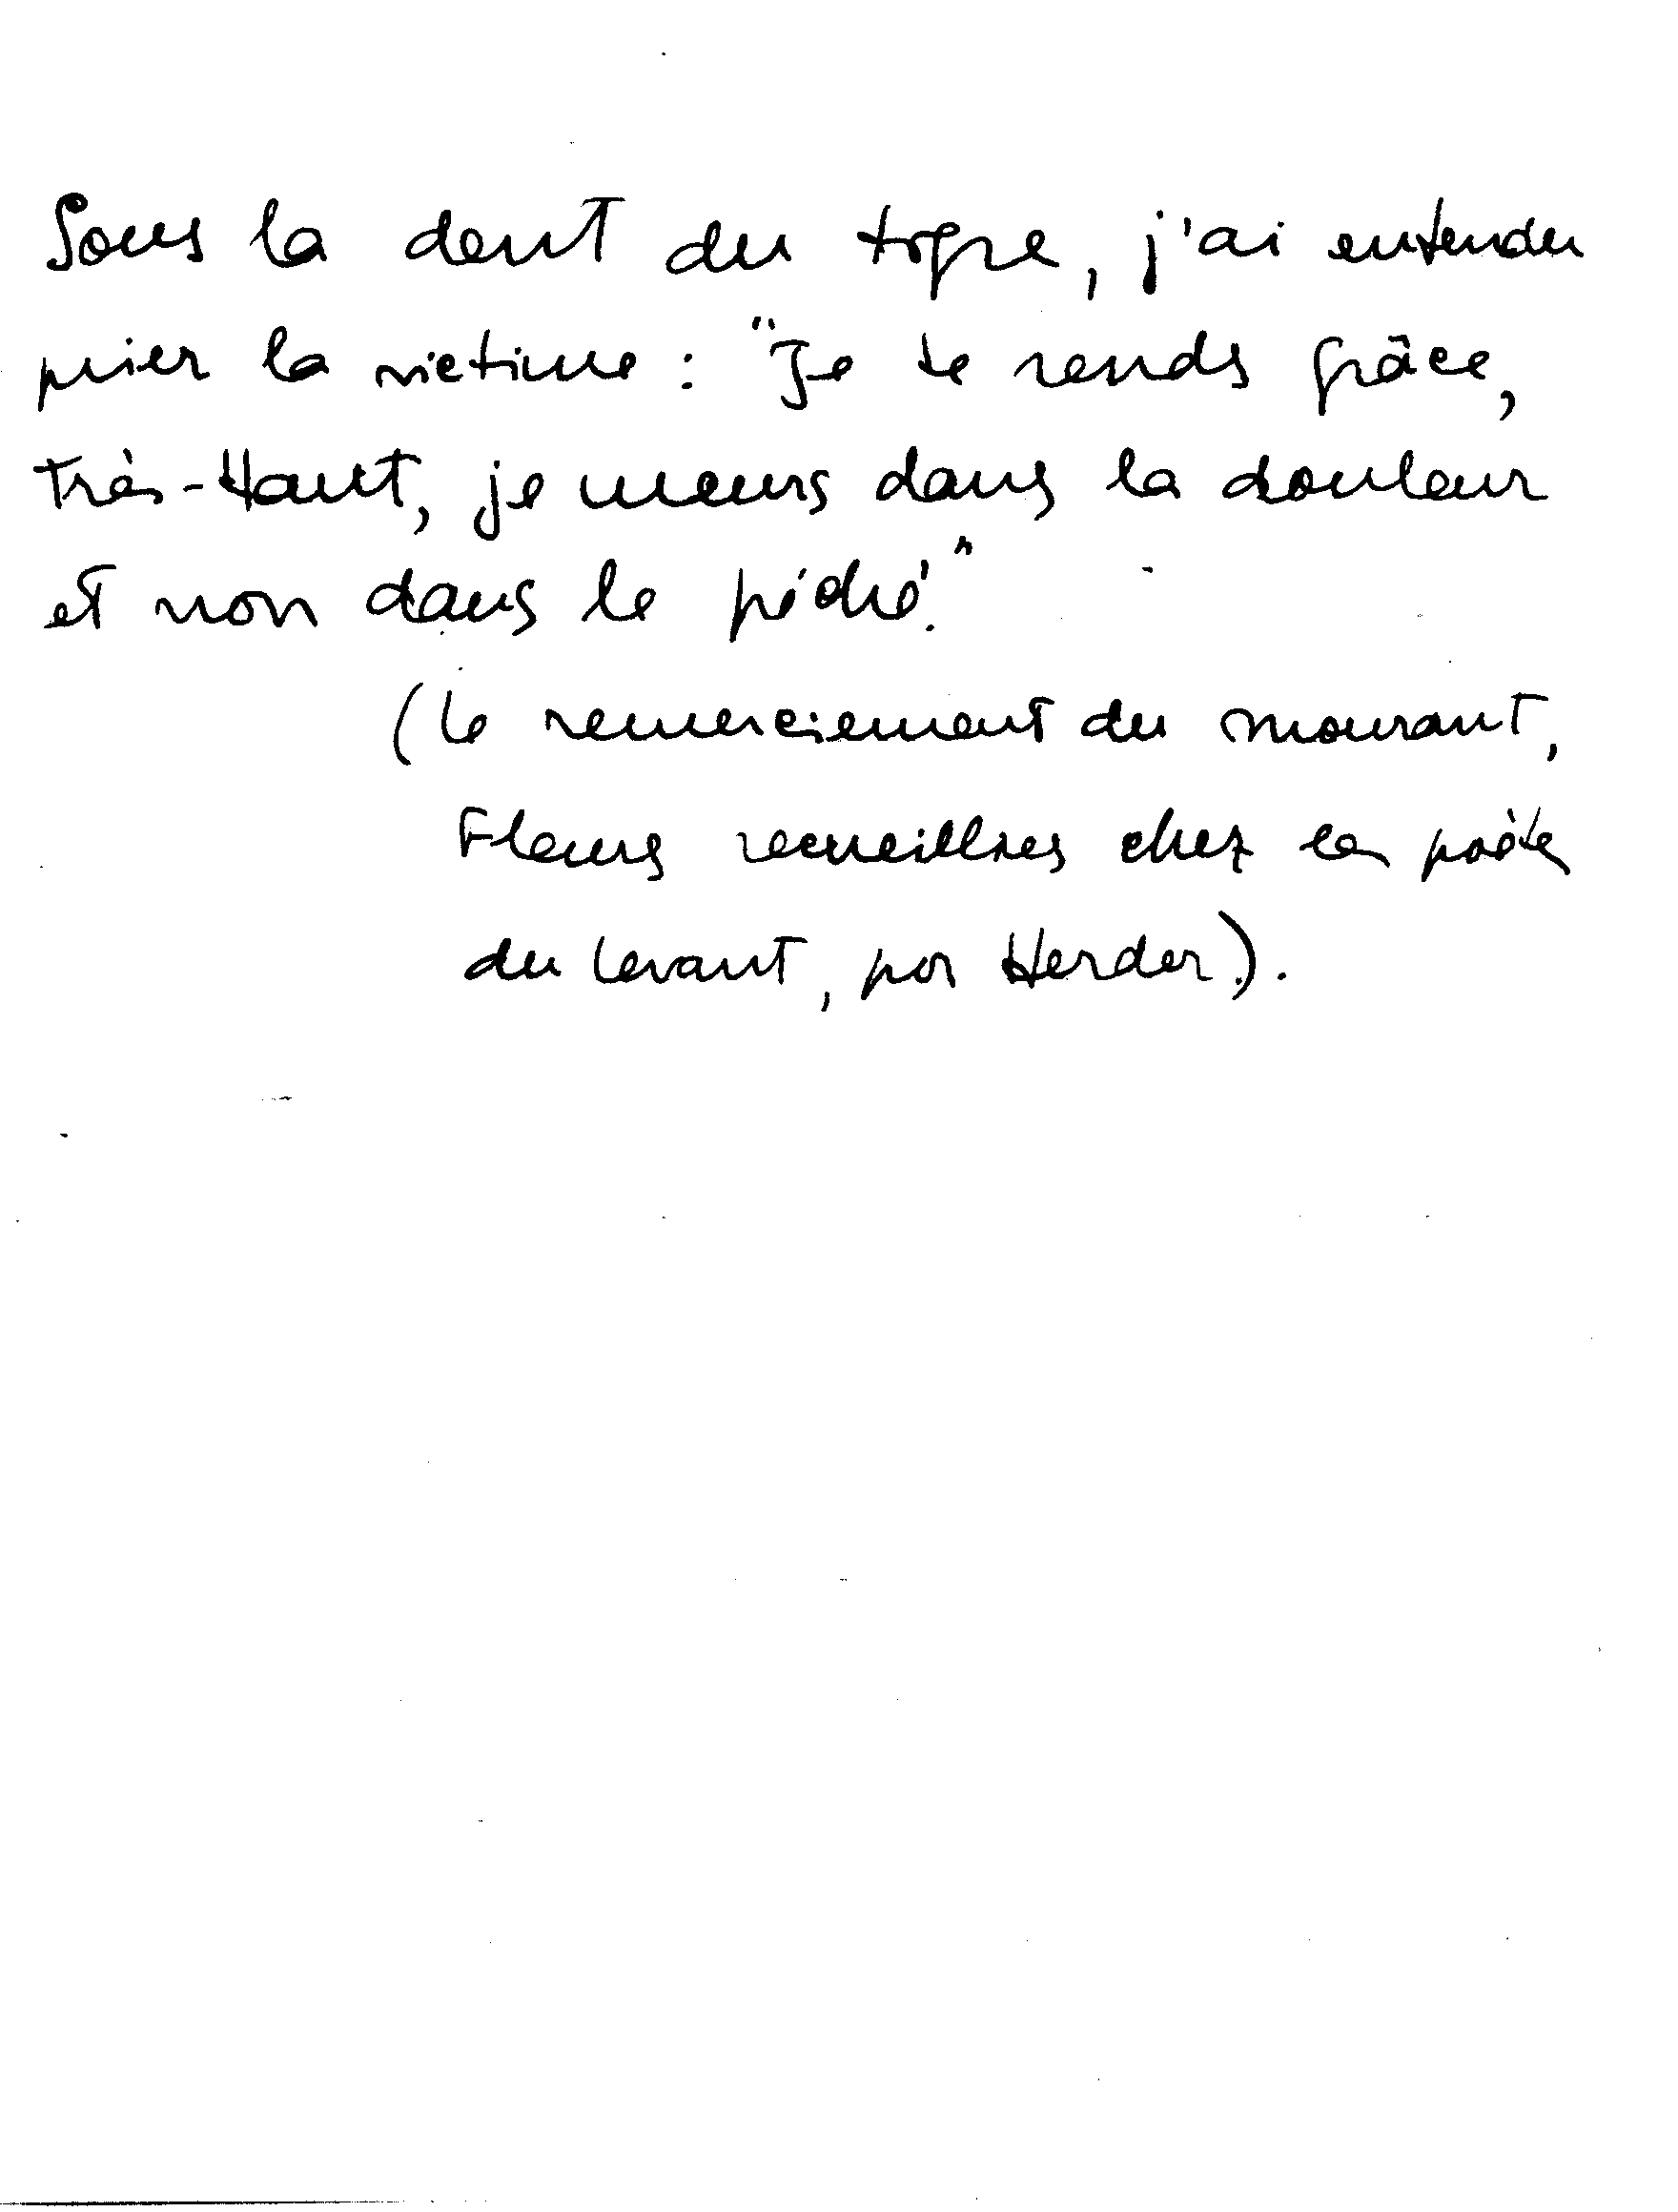 Sous la dent du tigre, j'ai entendu
prier la victime : "Je te rends grâce,
Très-Haut, je meurs dans la douleur
et non dans le péché."
(Le remerciement du mourant,
Fleurs recueillies chez les poètes
du Levant, par Herder).